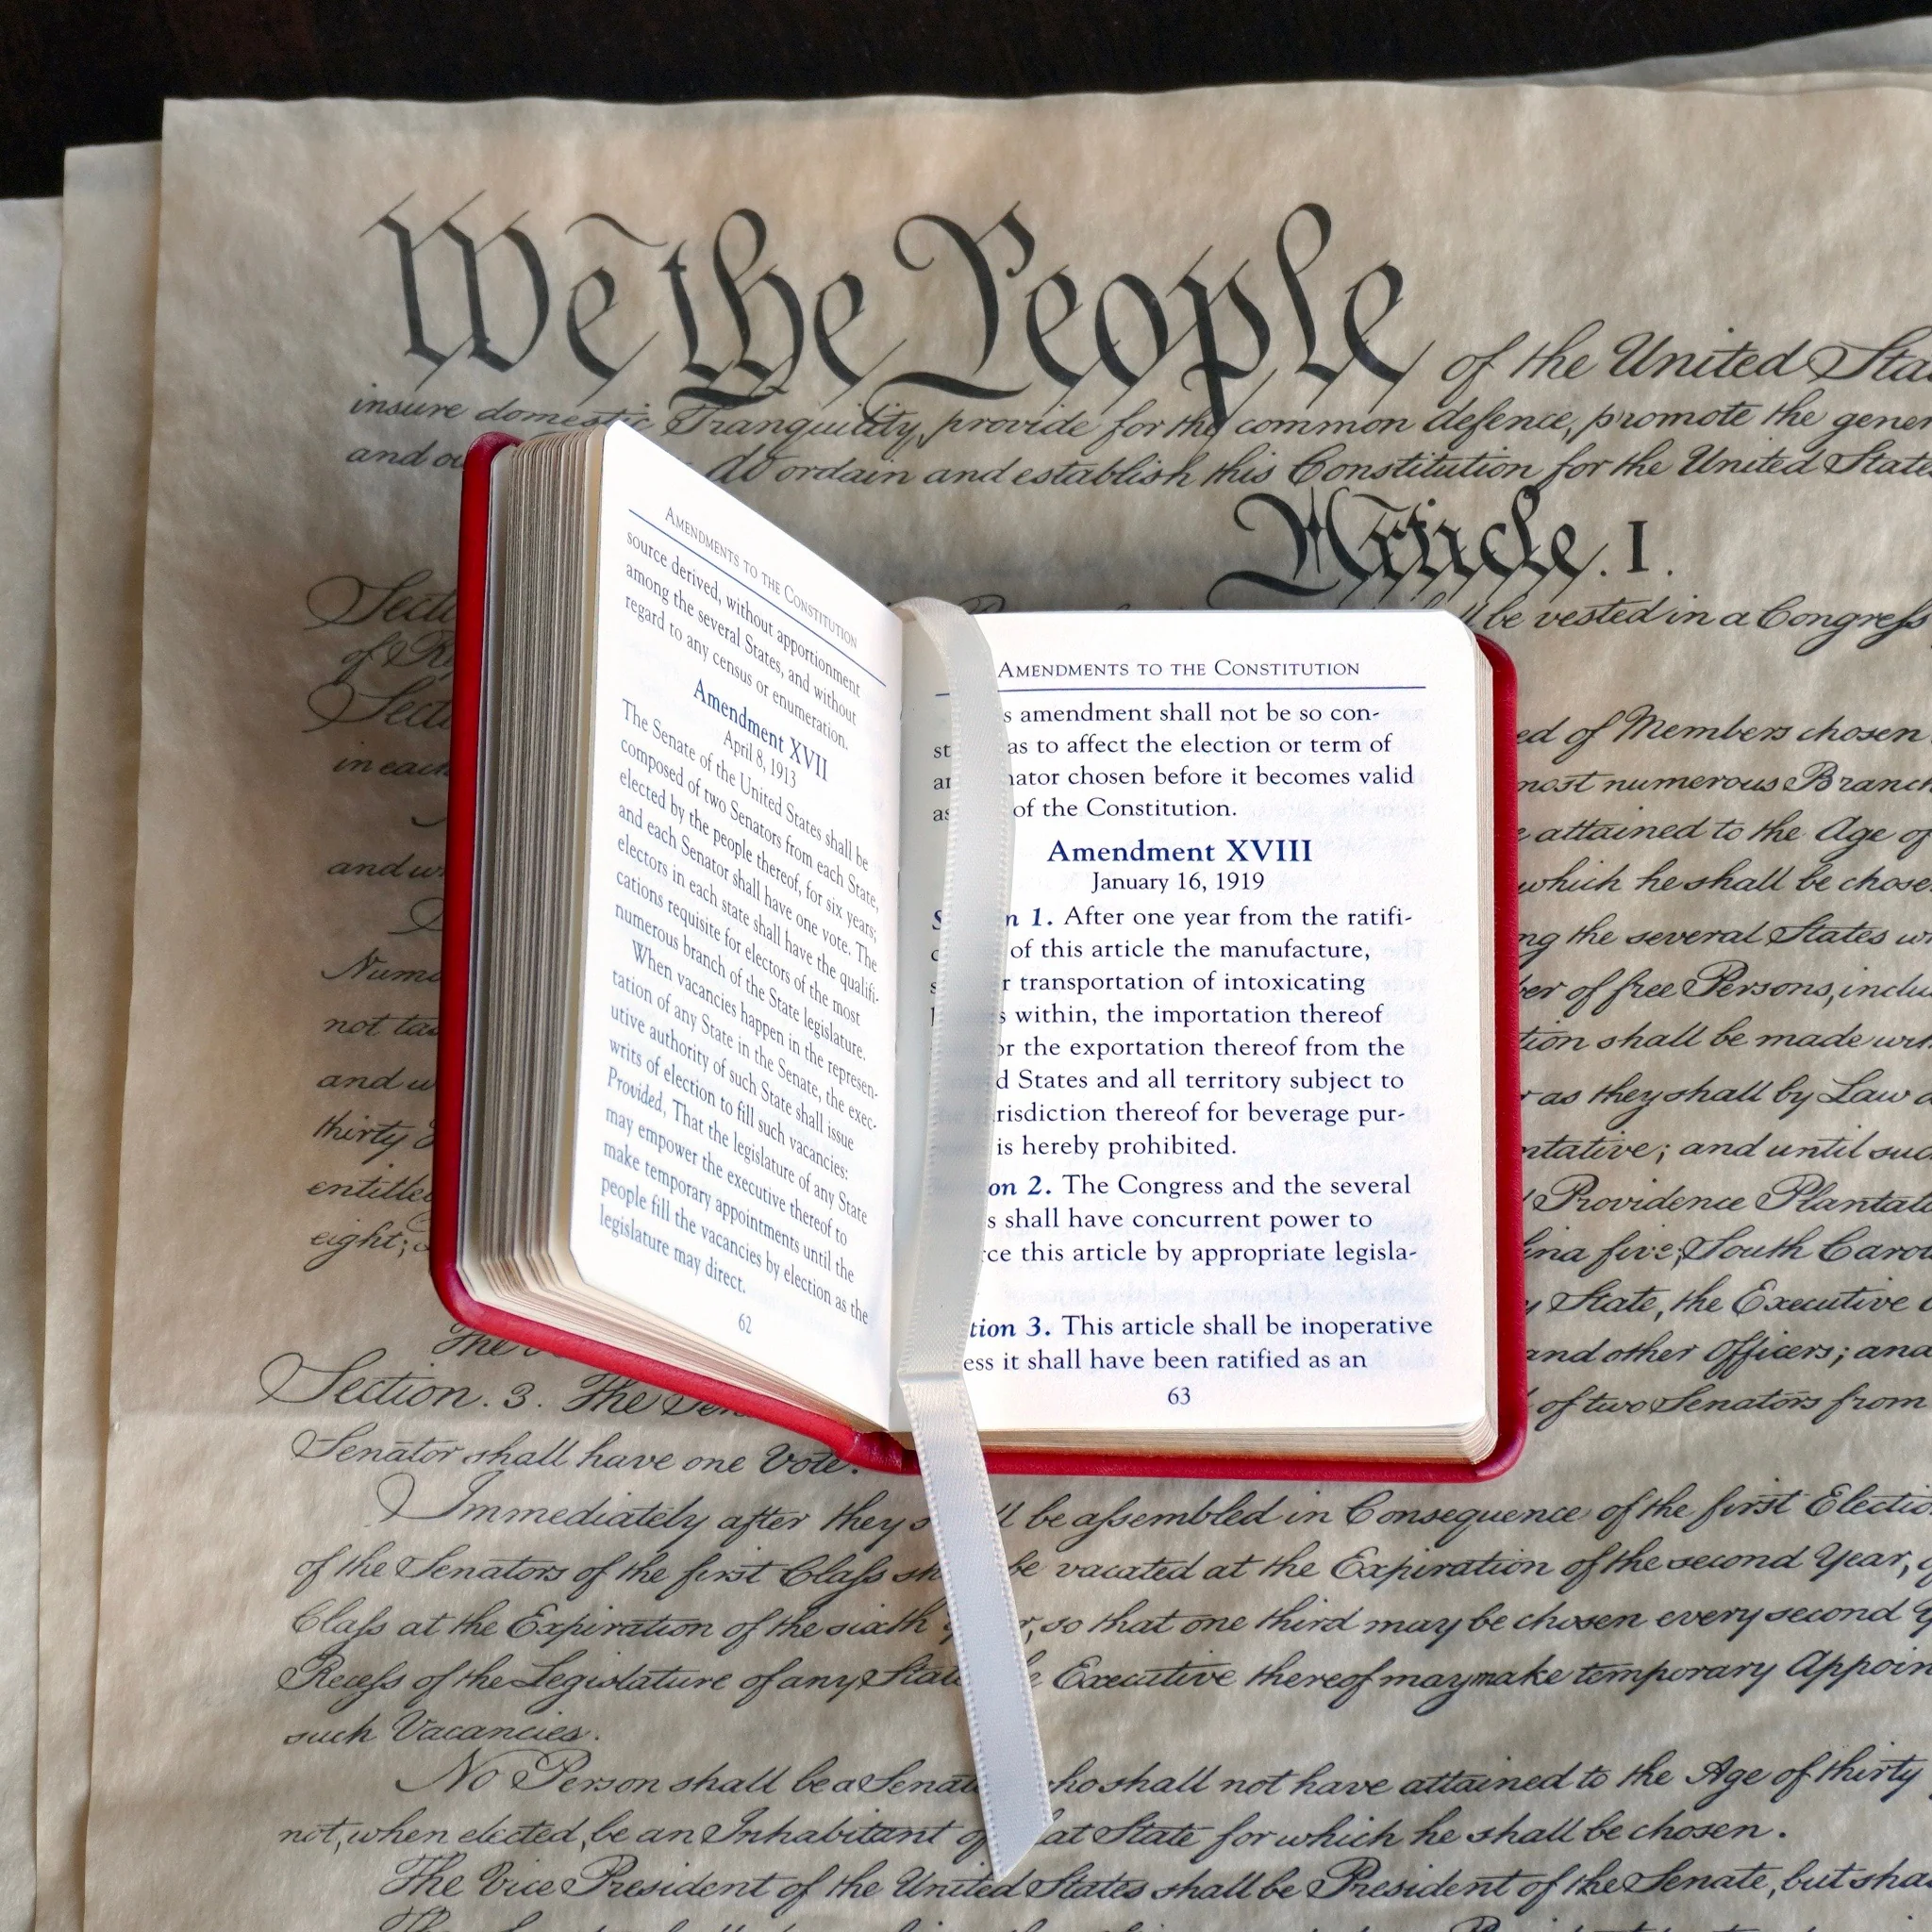 We the People of the United
insure domestic Tranquility, provide for the common defence, promote the
and do ordain and establish this Constitution for the United
Article. I.
be vested in a Congress
of
ed of Members chosen
in each
most numerous Branch
attained to the Age of
and
which he shall be
the several States
of free Persons,
not
tion shall be made
and
as they shall by Law
thirty
ntative; and until
entitled
Providence
eight;
five, South
State, the Executive
The
and other Officers; and
Section. 3. The
of two Senators from
Senator shall have one Vote.
Immediately after they be assembled in Consequence of the first
of the Senators of the first Class be vacated at the Expiration of the second Year,
Class at the Expiration of the sixth so that one third may be chosen every second
Recess of the Legislature of any Executive thereof may make temporary
such Vacancies.
No Person shall be a who shall not have attained to the Age of thirty
not, when elected, be an Inhabitant State for which he shall be chosen.
The Vice President of the United States shall be President of the Senate, but
AMENDMENTS TO THE CONSTITUTION
source derived, without apportionment
among the several States, and without
regard to any census or enumeration.
Amendment XVII
April 8, 1913
The Senate of the United States shall be
composed of two Senators from each State,
elected by the people thereof, for six years;
and each Senator shall have one vote. The
electors in each state shall have the qualifi-
cations requisite for electors of the most
numerous branch of the State legislature.
When vacancies happen in the represen-
tation of any State in the Senate, the exec-
utive authority of such State shall issue
writs of election to fill such vacancies:
Provided, That the legislature of any State
may empower the executive thereof to
make temporary appointments until the
people fill the vacancies by election as the
legislature may direct.
62
AMENDMENTS TO THE CONSTITUTION
s amendment shall not be so con-
st as to affect the election or term of
nator chosen before it becomes valid
as of the Constitution.
Amendment XVIII
January 16, 1919
n 1. After one year from the ratifi-
of this article the manufacture,
r transportation of intoxicating
s within, the importation thereof
or the exportation thereof from the
d States and all territory subject to
risdiction thereof for beverage pur-
is hereby prohibited.
on 2. The Congress and the several
s shall have concurrent power to
ce this article by appropriate legisla-
tion 3. This article shall be inoperative
ess it shall have been ratified as an
63